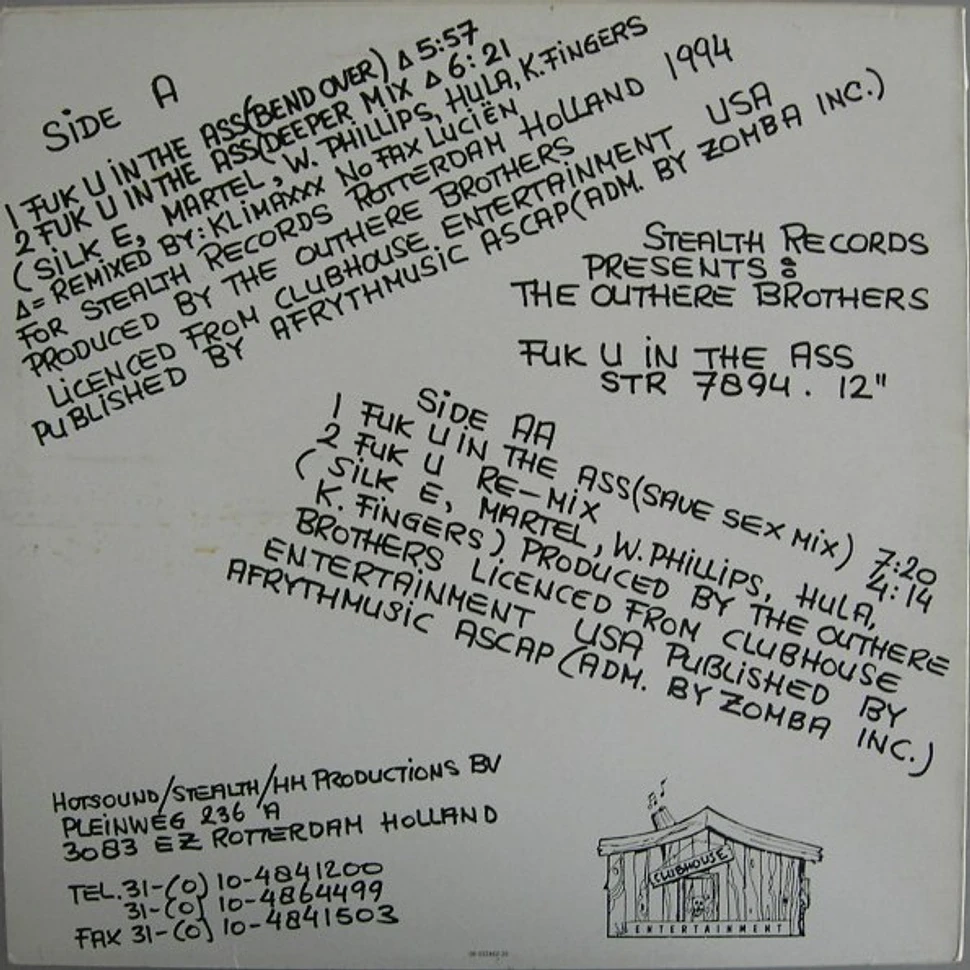 SIDE A
1 FUK U IN THE ASS(BEND OVER) Δ 5:57
2 FUK U IN THE ASS(DEEPER MIX Δ 6:21
(SILK E, MARTEL, W. PHILLIPS, HULA, K. FINGERS
Δ= REMIXED BY: KLIMAXXX NO FAX LUCIËN
FOR STEALTH RECORDS ROTTERDAM HOLLAND 1994
PRODUCED BY THE OUTHERE BROTHERS
LICENCED FROM CLUBHOUSE ENTERTAINMENT USA
PUBLISHED BY AFRYTHMUSIC ASCAP(ADM. BY ZOMBA INC.)
STEALTH RECORDS
PRESENTS:
THE OUTHERE BROTHERS
FUK U IN THE ASS
STR 7894. 12"
SIDE AA
1 FUK U IN THE ASS(SAVE SEX MIX) 7:20
2 FUK U RE-MIX 4:14
(SILK E, MARTEL, W. PHILLIPS, HULA,
K. FINGERS) PRODUCED BY THE OUTHERE
BROTHERS LICENCED FROM CLUBHOUSE
ENTERTAINMENT USA PUBLISHED BY
AFRYTHMUSIC ASCAP(ADM. BY ZOMBA INC.)
HOTSOUND/STEALTH/HH PRODUCTIONS BV
PLEINWEG 236 A
3083 EZ ROTTERDAM HOLLAND
TEL. 31-(0) 10-4841200
31-(0) 10-4864499
FAX 31-(0) 10-4841503
CLUBHOUSE
ENTERTAINMENT